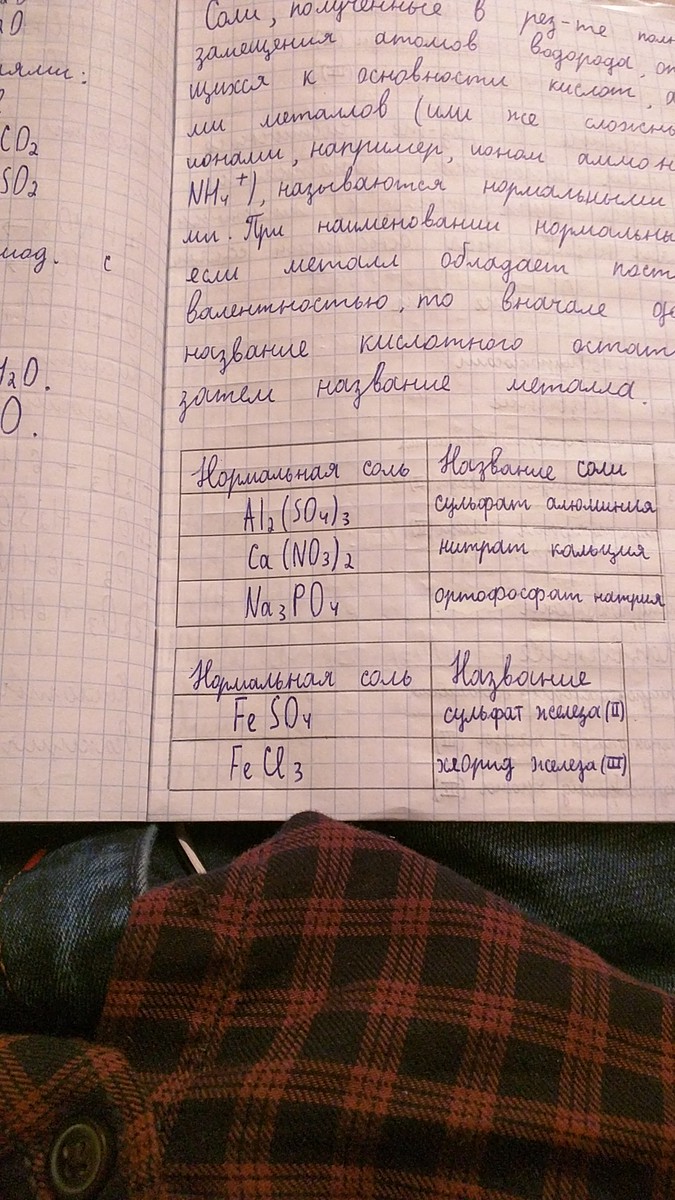 O
иями:
CO₂
SO₂
с
H₂O.
O.
Соли, полученные в рез-те
замещения атомов водорода,
щихся к основности кислот,
ми металлов (или же
ионами, например, ионом
NH₄⁺), называются нормальными
ми. При наименовании
если металл обладает
валентностью, то вначале
название кислотного
затем название металла.
Нормальная соль Название соли
Al₂(SO₄)₃ сульфат алюминия
Ca(NO₃)₂ нитрат кальция
Na₃PO₄ ортофосфат натрия
Нормальная соль Название
FeSO₄ сульфат железа(II)
FeCl₃ хлорид железа(III)